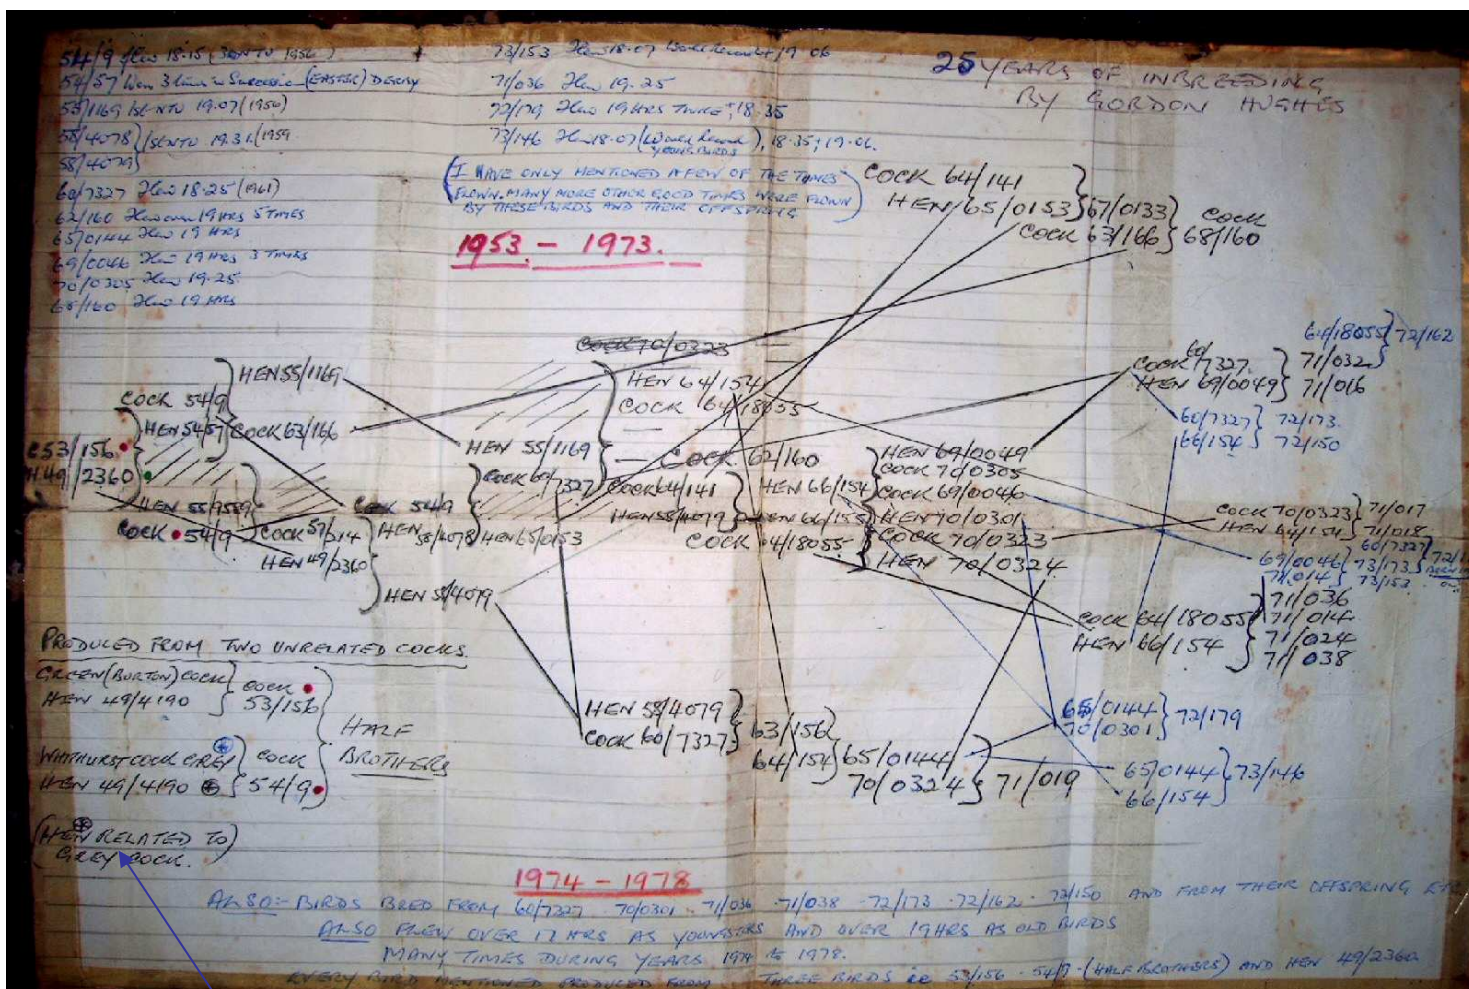 54/9 Flew 18.15 (1st NTU 1956)
54/57 Won 3 times in Succession (EASTER) DERBY
55/1169 1st NTU 19.07 (1956)
58/4078 } 1st NTU 19.31 (1959
58/4079
60/7327 Flew 18.25 (1961)
62/160 Flew over 19 HRS 5 TIMES
65/0144 Flew 19 HRS
69/0046 Flew 19 HRS 3 TIMES
70/0305 Flew 19.25
68/160 Flew 19 HRS
73/153 Flew 18.07 World Record & 19.06
71/036 Flew 19.25
72/179 Flew 19 HRS TWICE + 18.35
73/146 Flew 18.07 (World Record YOUNG BIRDS), 18.35 & 19.06.
(I HAVE ONLY MENTIONED A FEW OF THE TIMES
FLOWN. MANY MORE OTHER GOOD TIMES WERE FLOWN
BY THESE BIRDS AND THEIR OFFSPRING)
1953 - 1973.
25 YEARS OF INBREEDING
BY GORDON HUGHES
COCK 64/141
HEN 65/0153 } 67/0133 } COCK
COCK 63/166 } 68/160
COCK 70/0323
HEN 55/1169
COCK 54/9
HEN 54/57
COCK 63/166
C53/156
H49/2360
HEN 55/9559
COCK 54/9
COCK 57/214
HEN 49/2360
COCK 54/9
HEN 58/4078
HEN 58/4079
HEN 64/154
COCK 64/18055
HEN 55/1169
COCK 62/160
COCK 60/7327
HEN 65/0153
COCK 64/141
HEN 58/4079
HEN 66/154
HEN 66/155
COCK 64/18055
HEN 69/0049
COCK 70/0305
COCK 69/0046
HEN 70/0301
COCK 70/0323
HEN 70/0324
64/18055 } 72/162
COCK 60/7327 } 71/032
HEN 69/0049 } 71/016
60/7327 } 72/173.
66/154 } 72/150
COCK 70/0323 } 71/017
HEN 64/154 } 71/018
60/7327
69/0046 } 73/173
71/014 } 73/153
COCK 64/18055
HEN 66/154
71/036
71/014
71/024
71/038
PRODUCED FROM TWO UNRELATED COCKS
GREEN (BURTON) COCK } COCK
HEN 49/4190 } 53/156
HALF
BROTHERS
WHITHURST COCK GREY } COCK
HEN 49/4190 } 54/9
(HEN RELATED TO)
GREY COCK.
HEN 58/4079
COCK 60/7327
63/156
64/154 } 65/0144
70/0324 } 71/019
65/0144
70/0301 } 72/179
65/0144 } 73/146
66/154
1974 - 1978
ALSO:- BIRDS BRED FROM 60/7327 . 70/0301 . 71/036 . 71/038 . 72/173 . 72/162 . 72/150 AND FROM THEIR OFFSPRING ETC
ALSO FLEW OVER 17 HRS AS YOUNGSTERS AND OVER 19 HRS AS OLD BIRDS
MANY TIMES DURING YEARS 1974 to 1978.
EVERY BIRD MENTIONED PRODUCED FROM THREE BIRDS ie 53/156 . 54/9 . (HALF BROTHERS) AND HEN 49/2360